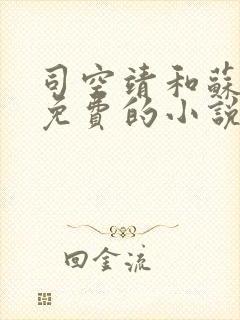 司空靖和蘇
免費的小說
回金流